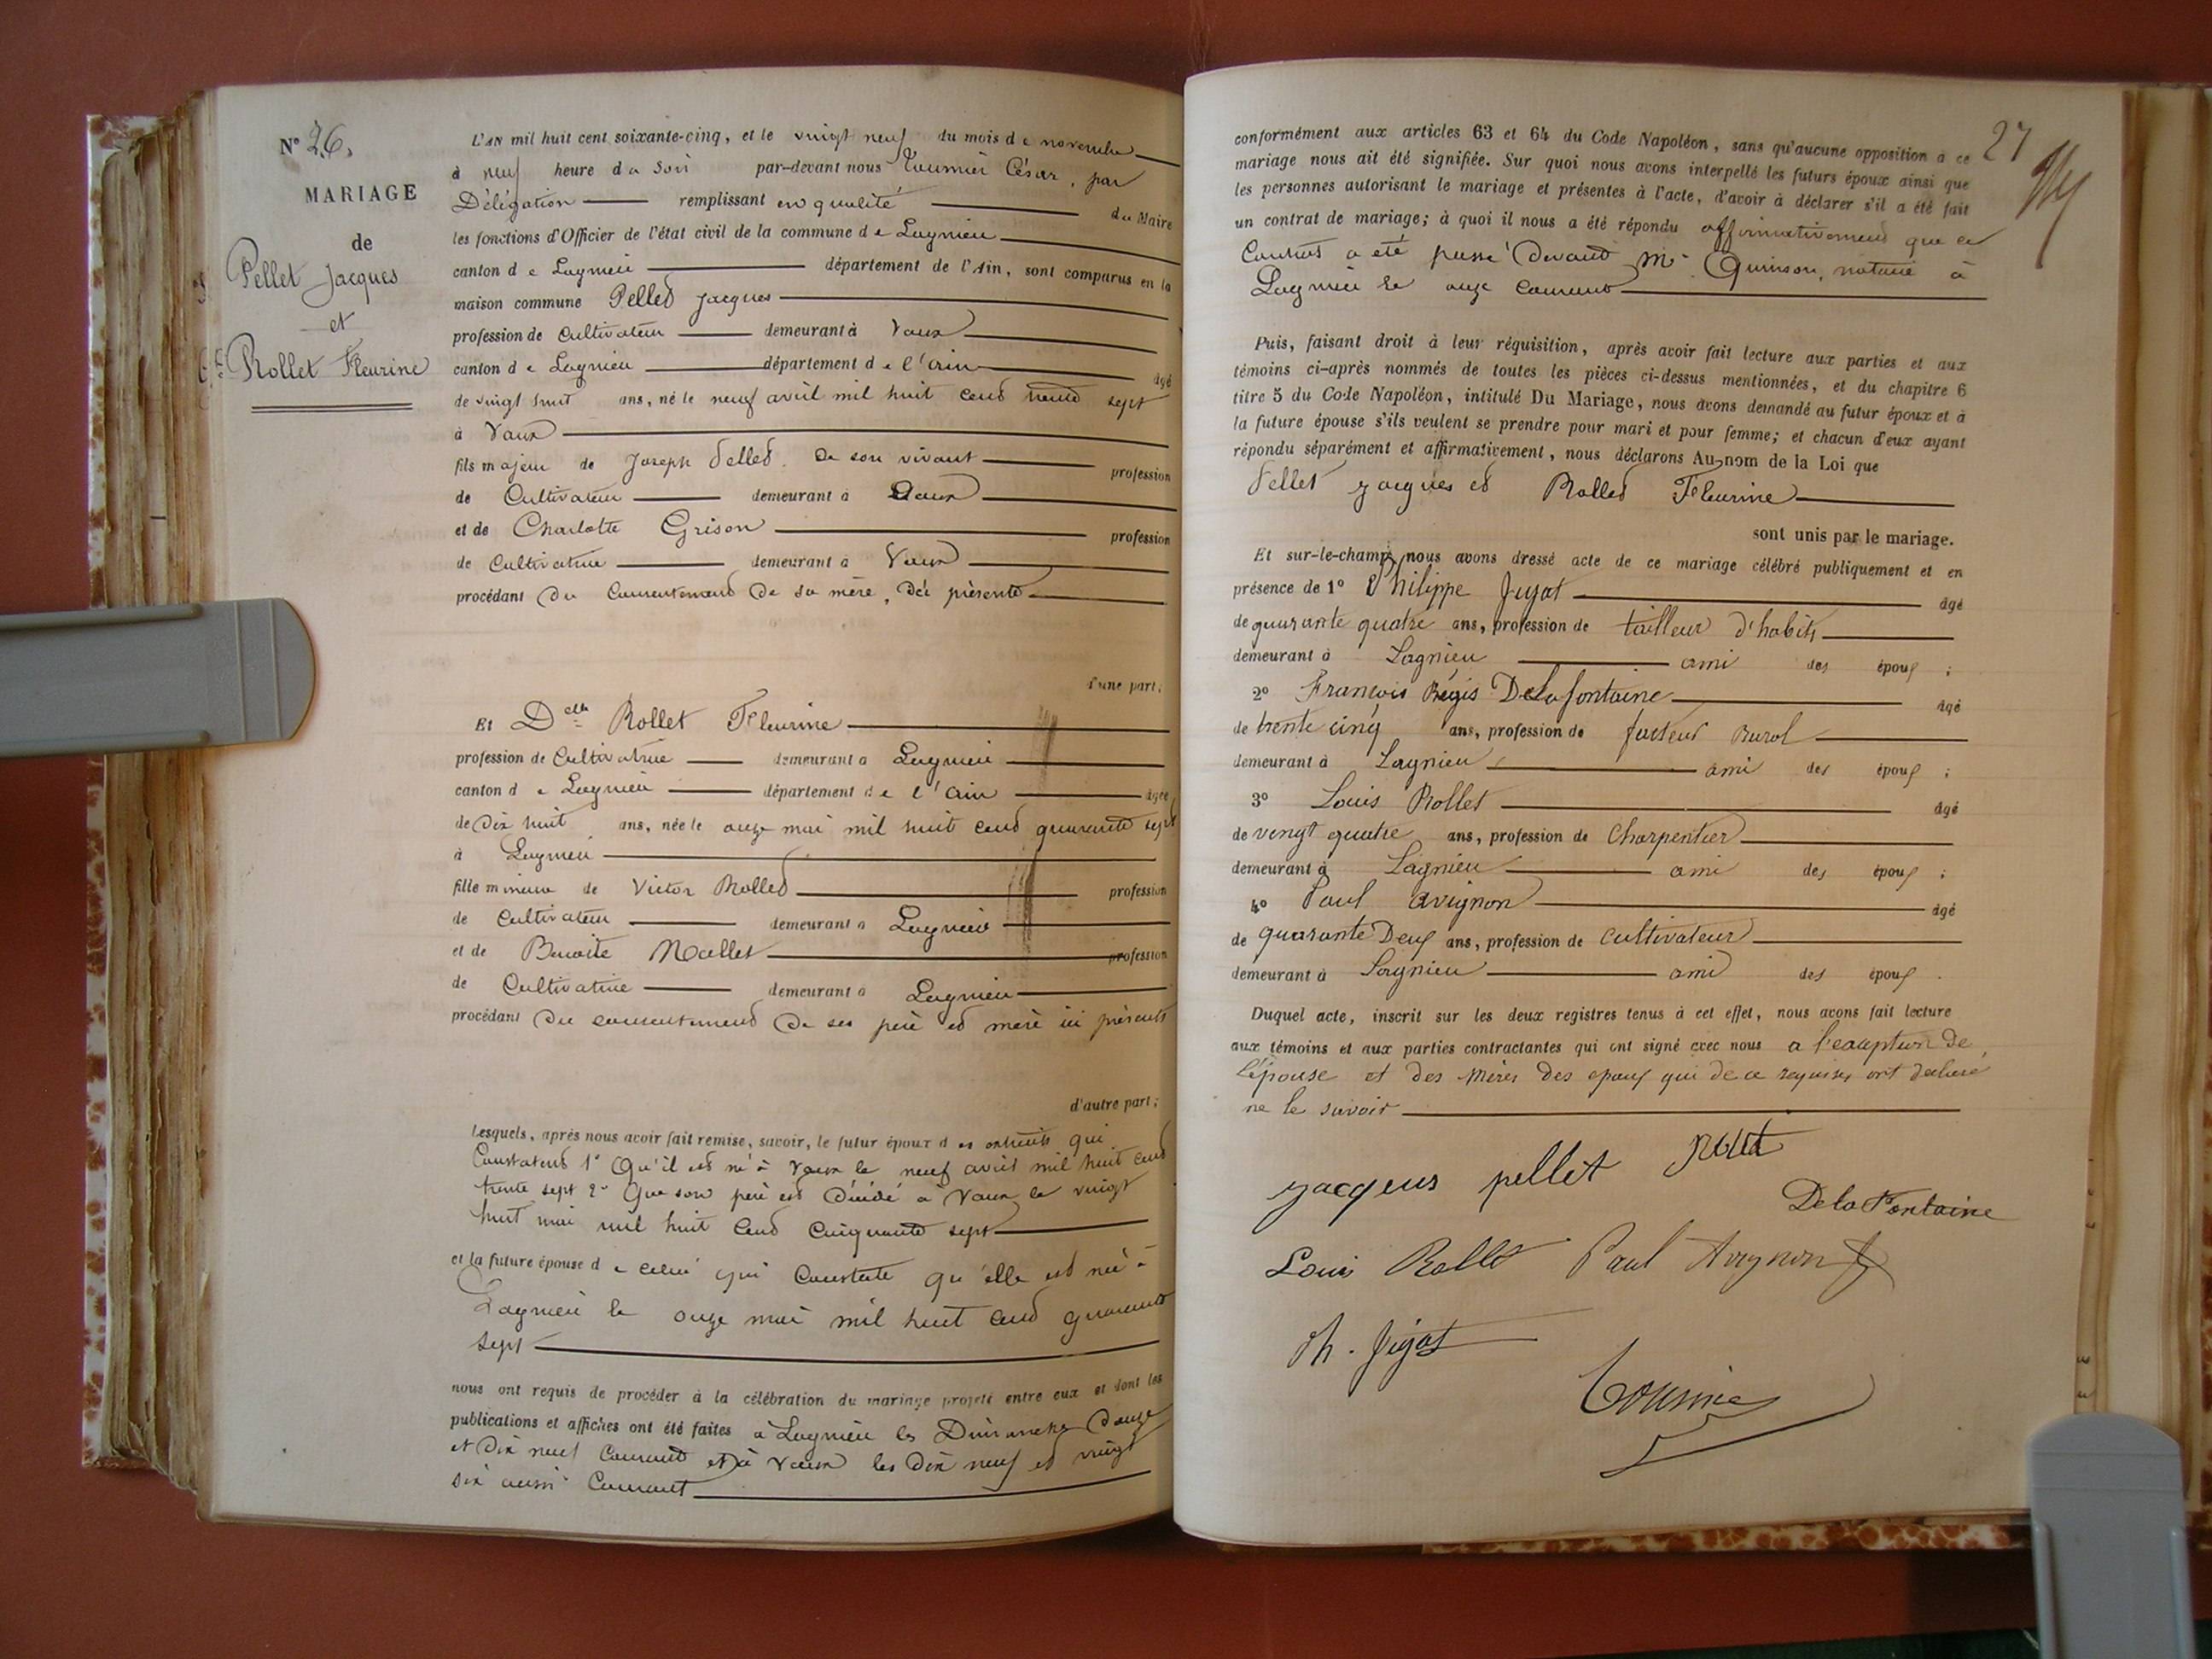 N° 26.
MARIAGE
de
Pellet Jacques
et
Rollet Fleurine
L'AN mil huit cent soixante-cinq, et le vingt neuf du mois de novembre
à neuf heure du soir par-devant nous Tournier César, par
Délégation remplissant en qualité du Maire
les fonctions d'Officier de l'état civil de la commune de Lagnieu
canton de Lagnieu département de l'Ain, sont comparus en la
maison commune Pellet Jacques
profession de Cultivateur demeurant à Vaux
canton de Lagnieu département de l'ain âgé
de vingt huit ans, né le neuf avril mil huit cent trente sept
à Vaux
fils majeur de Joseph Pellet. De son vivant profession
de Cultivateur demeurant à Vaux
et de Charlotte Grison profession
de Cultivatrice demeurant à Vaux
procédant du Consentement De sa mère, présente
d'une part;
Et Delle Rollet Fleurine
profession de Cultivatrice demeurant à Lagnieu
canton de Lagnieu département de l'ain âgée
de dix huit ans, née le onze mai mil huit cent quarante sept
à Lagnieu
fille mineure de Victor Rollet profession
de Cultivateur demeurant à Lagnieu
et de Benoite Mallet profession
de Cultivatrice demeurant à Lagnieu
procédant Du consentement De ses père et mère ici présents
d'autre part;
Lesquels, après nous avoir fait remise, savoir, le futur époux des extraits qui
Constatent 1° Qu'il est né à Vaux le neuf avril mil huit cent
trente sept 2° Que son père est décédé à Vaux le vingt
huit mai mil huit cent cinquante sept
et la future épouse de celui qui Constate qu'elle est née à
Lagnieu le onze mai mil huit cent quarante
sept
nous ont requis de procéder à la célébration du mariage projeté entre eux et dont les
publications et affiches ont été faites à Lagnieu les Dimanches Douze
et Dix neuf Courant et à Vaux les Dix neuf et vingt
six aussi Courant
27
conformément aux articles 63 et 64 du Code Napoléon, sans qu'aucune opposition à ce
mariage nous ait été signifiée. Sur quoi nous avons interpellé les futurs époux ainsi que
les personnes autorisant le mariage et présentes à l'acte, d'avoir à déclarer s'il a été fait
un contrat de mariage; à quoi il nous a été répondu affirmativement que ce
Contrat a été passé Devant Me Quinson, notaire à
Lagnieu le onze Courant
Puis, faisant droit à leur réquisition, après avoir fait lecture aux parties et aux
témoins ci-après nommés de toutes les pièces ci-dessus mentionnées, et du chapitre 6
titre 5 du Code Napoléon, intitulé Du Mariage, nous avons demandé au futur époux et à
la future épouse s'ils veulent se prendre pour mari et pour femme; et chacun d'eux ayant
répondu séparément et affirmativement, nous déclarons Au nom de la Loi que
Pellet Jacques et Rollet Fleurine
sont unis par le mariage.
Et sur-le-champ nous avons dressé acte de ce mariage célébré publiquement et en
présence de 1° Philippe Jugat âgé
de quarante quatre ans, profession de tailleur d'habits
demeurant à Lagnieu ami des époux ;
2° François Régis Delafontaine âgé
de trente cinq ans, profession de facteur Rural
demeurant à Lagnieu ami des époux ;
3° Louis Rollet âgé
de vingt quatre ans, profession de Charpentier
demeurant à Lagnieu ami des époux ;
4° Paul Avignon âgé
de quarante Deux ans, profession de cultivateur
demeurant à Lagnieu ami des époux .
Duquel acte, inscrit sur les deux registres tenus à cet effet, nous avons fait lecture
aux témoins et aux parties contractantes qui ont signé avec nous a l'exception de
l'épouse et des mères des époux qui de ce requises ont declaré
ne le savoir
jacqeus pellet Rollet
Delafontaine
Louis Rollet Paul Avignon
Ph. Jugat
Tournier